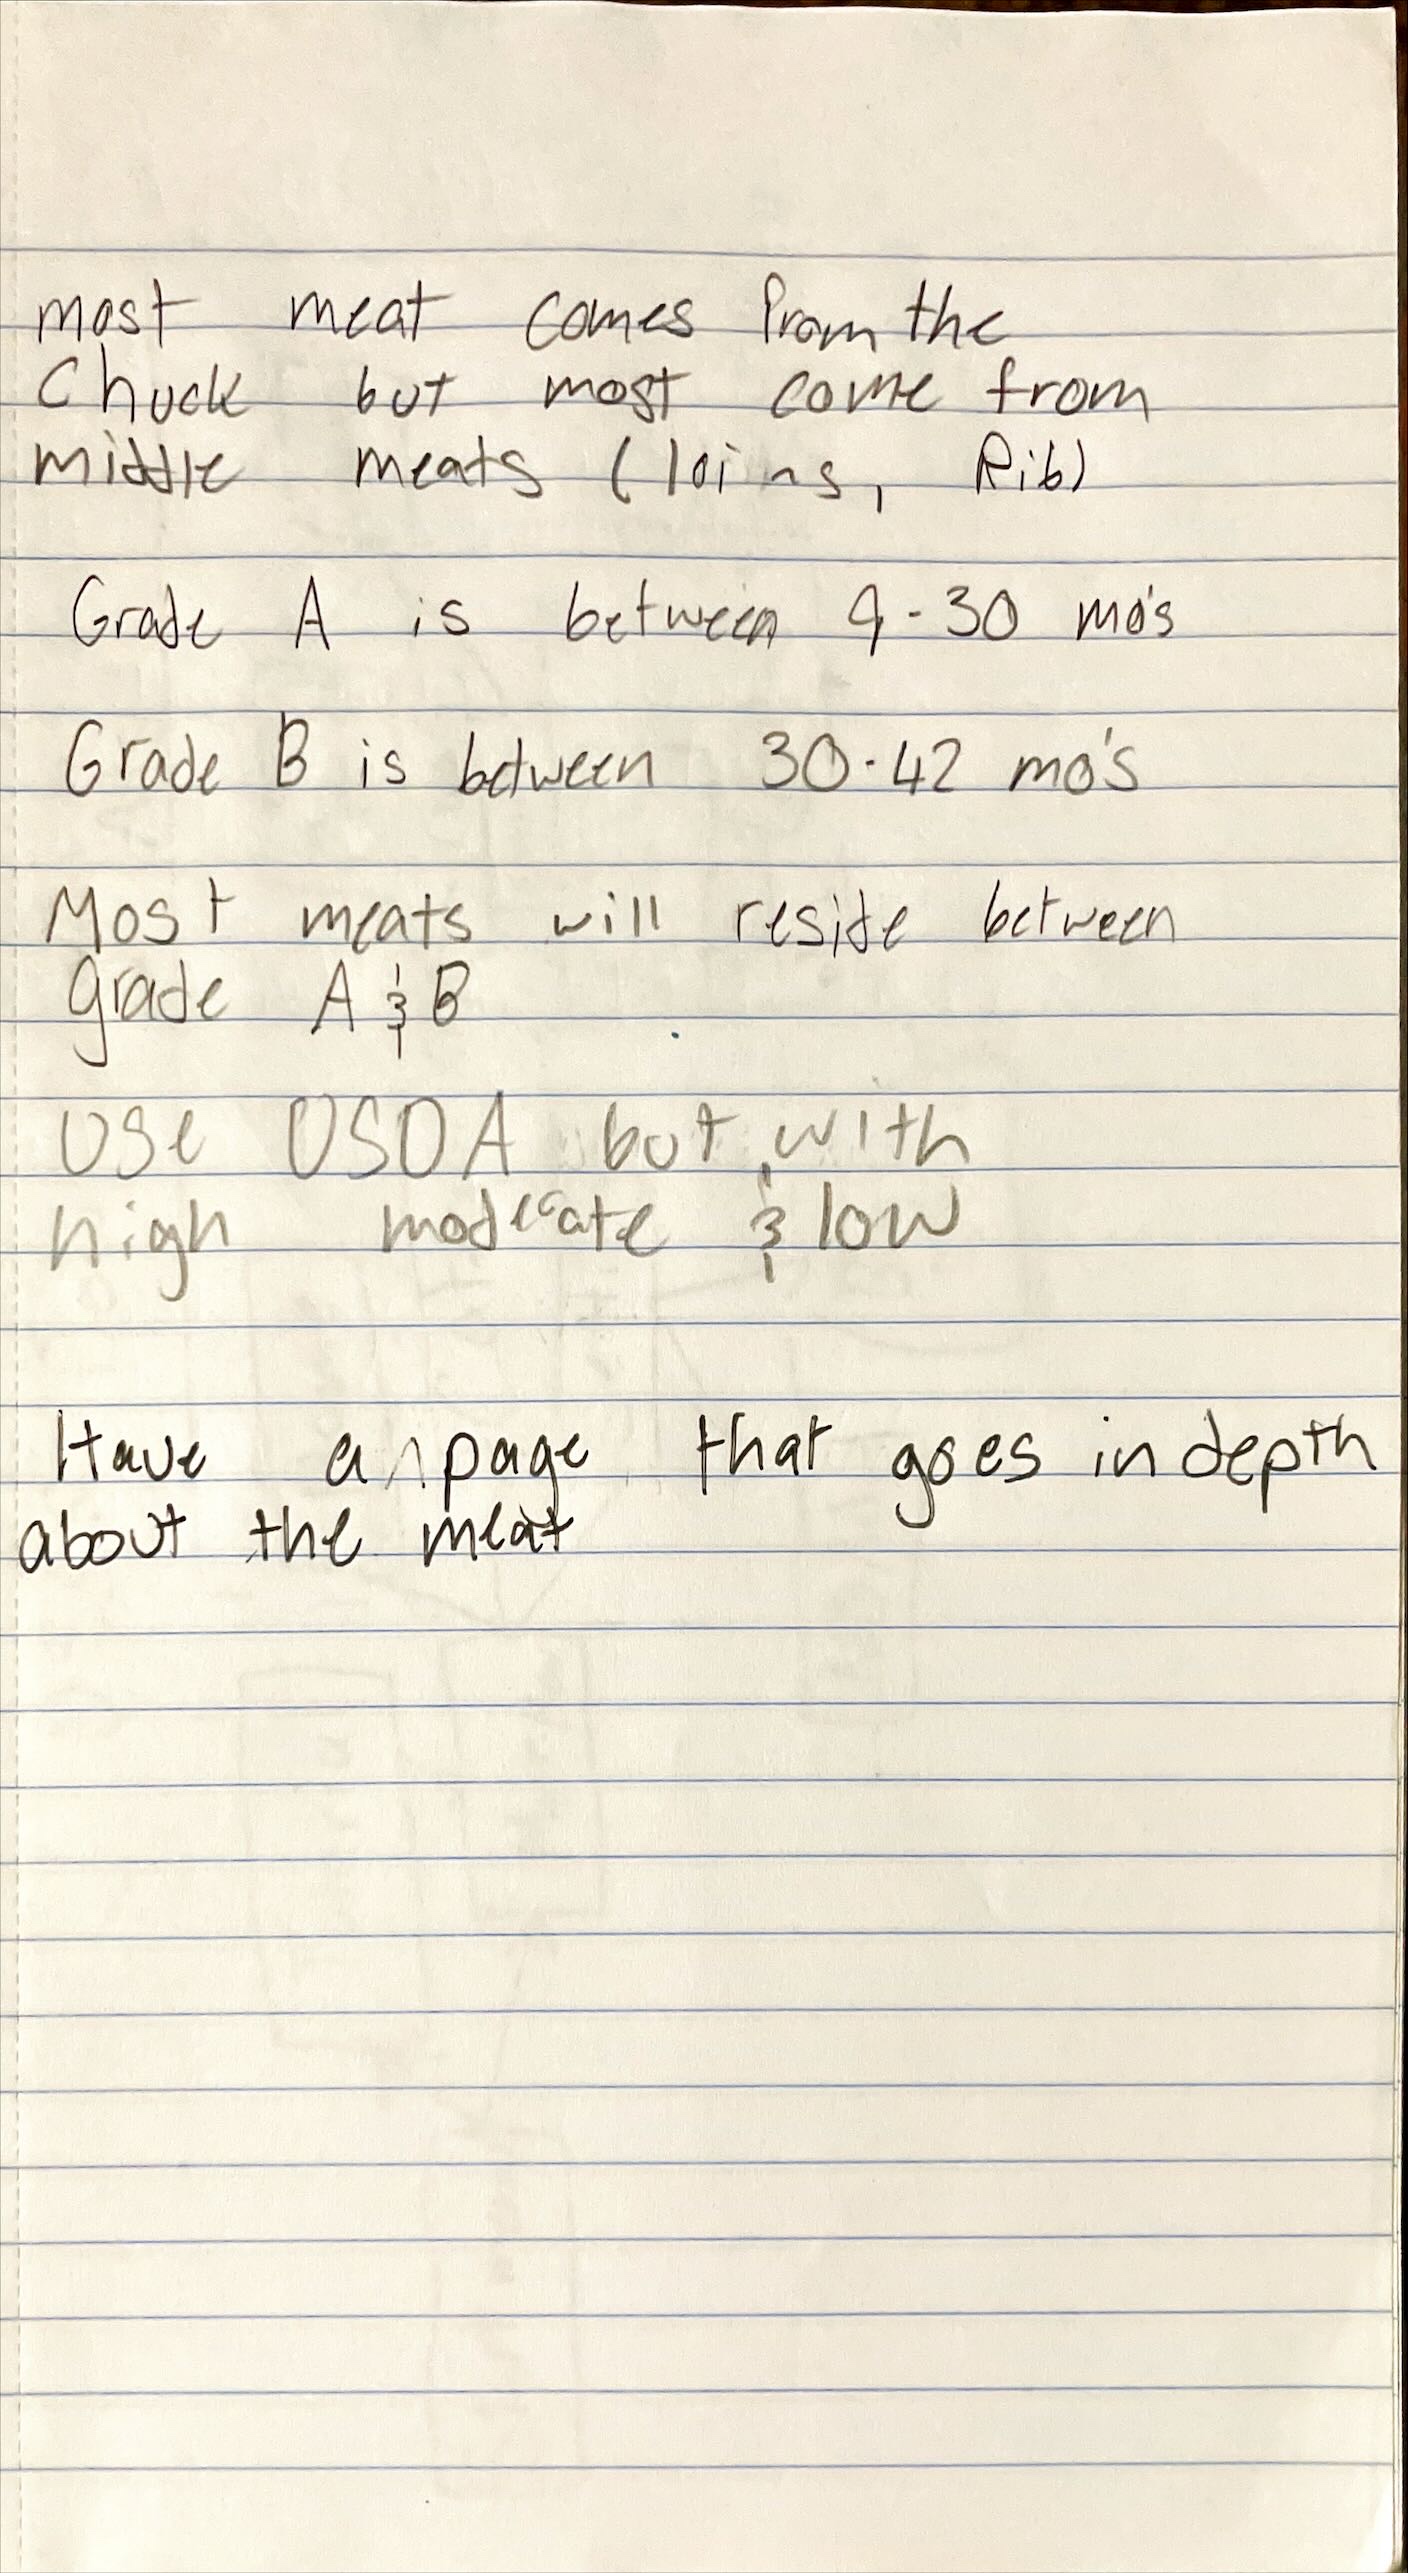 most meat comes from the
Chuck but most come from
middle meats (loins, Rib)
Grade A is between 9-30 mo's
Grade B is between 30-42 mo's
Most meats will reside between
grade A & B
Use USDA but with
high moderate & low
Have a page that goes in depth
about the meat